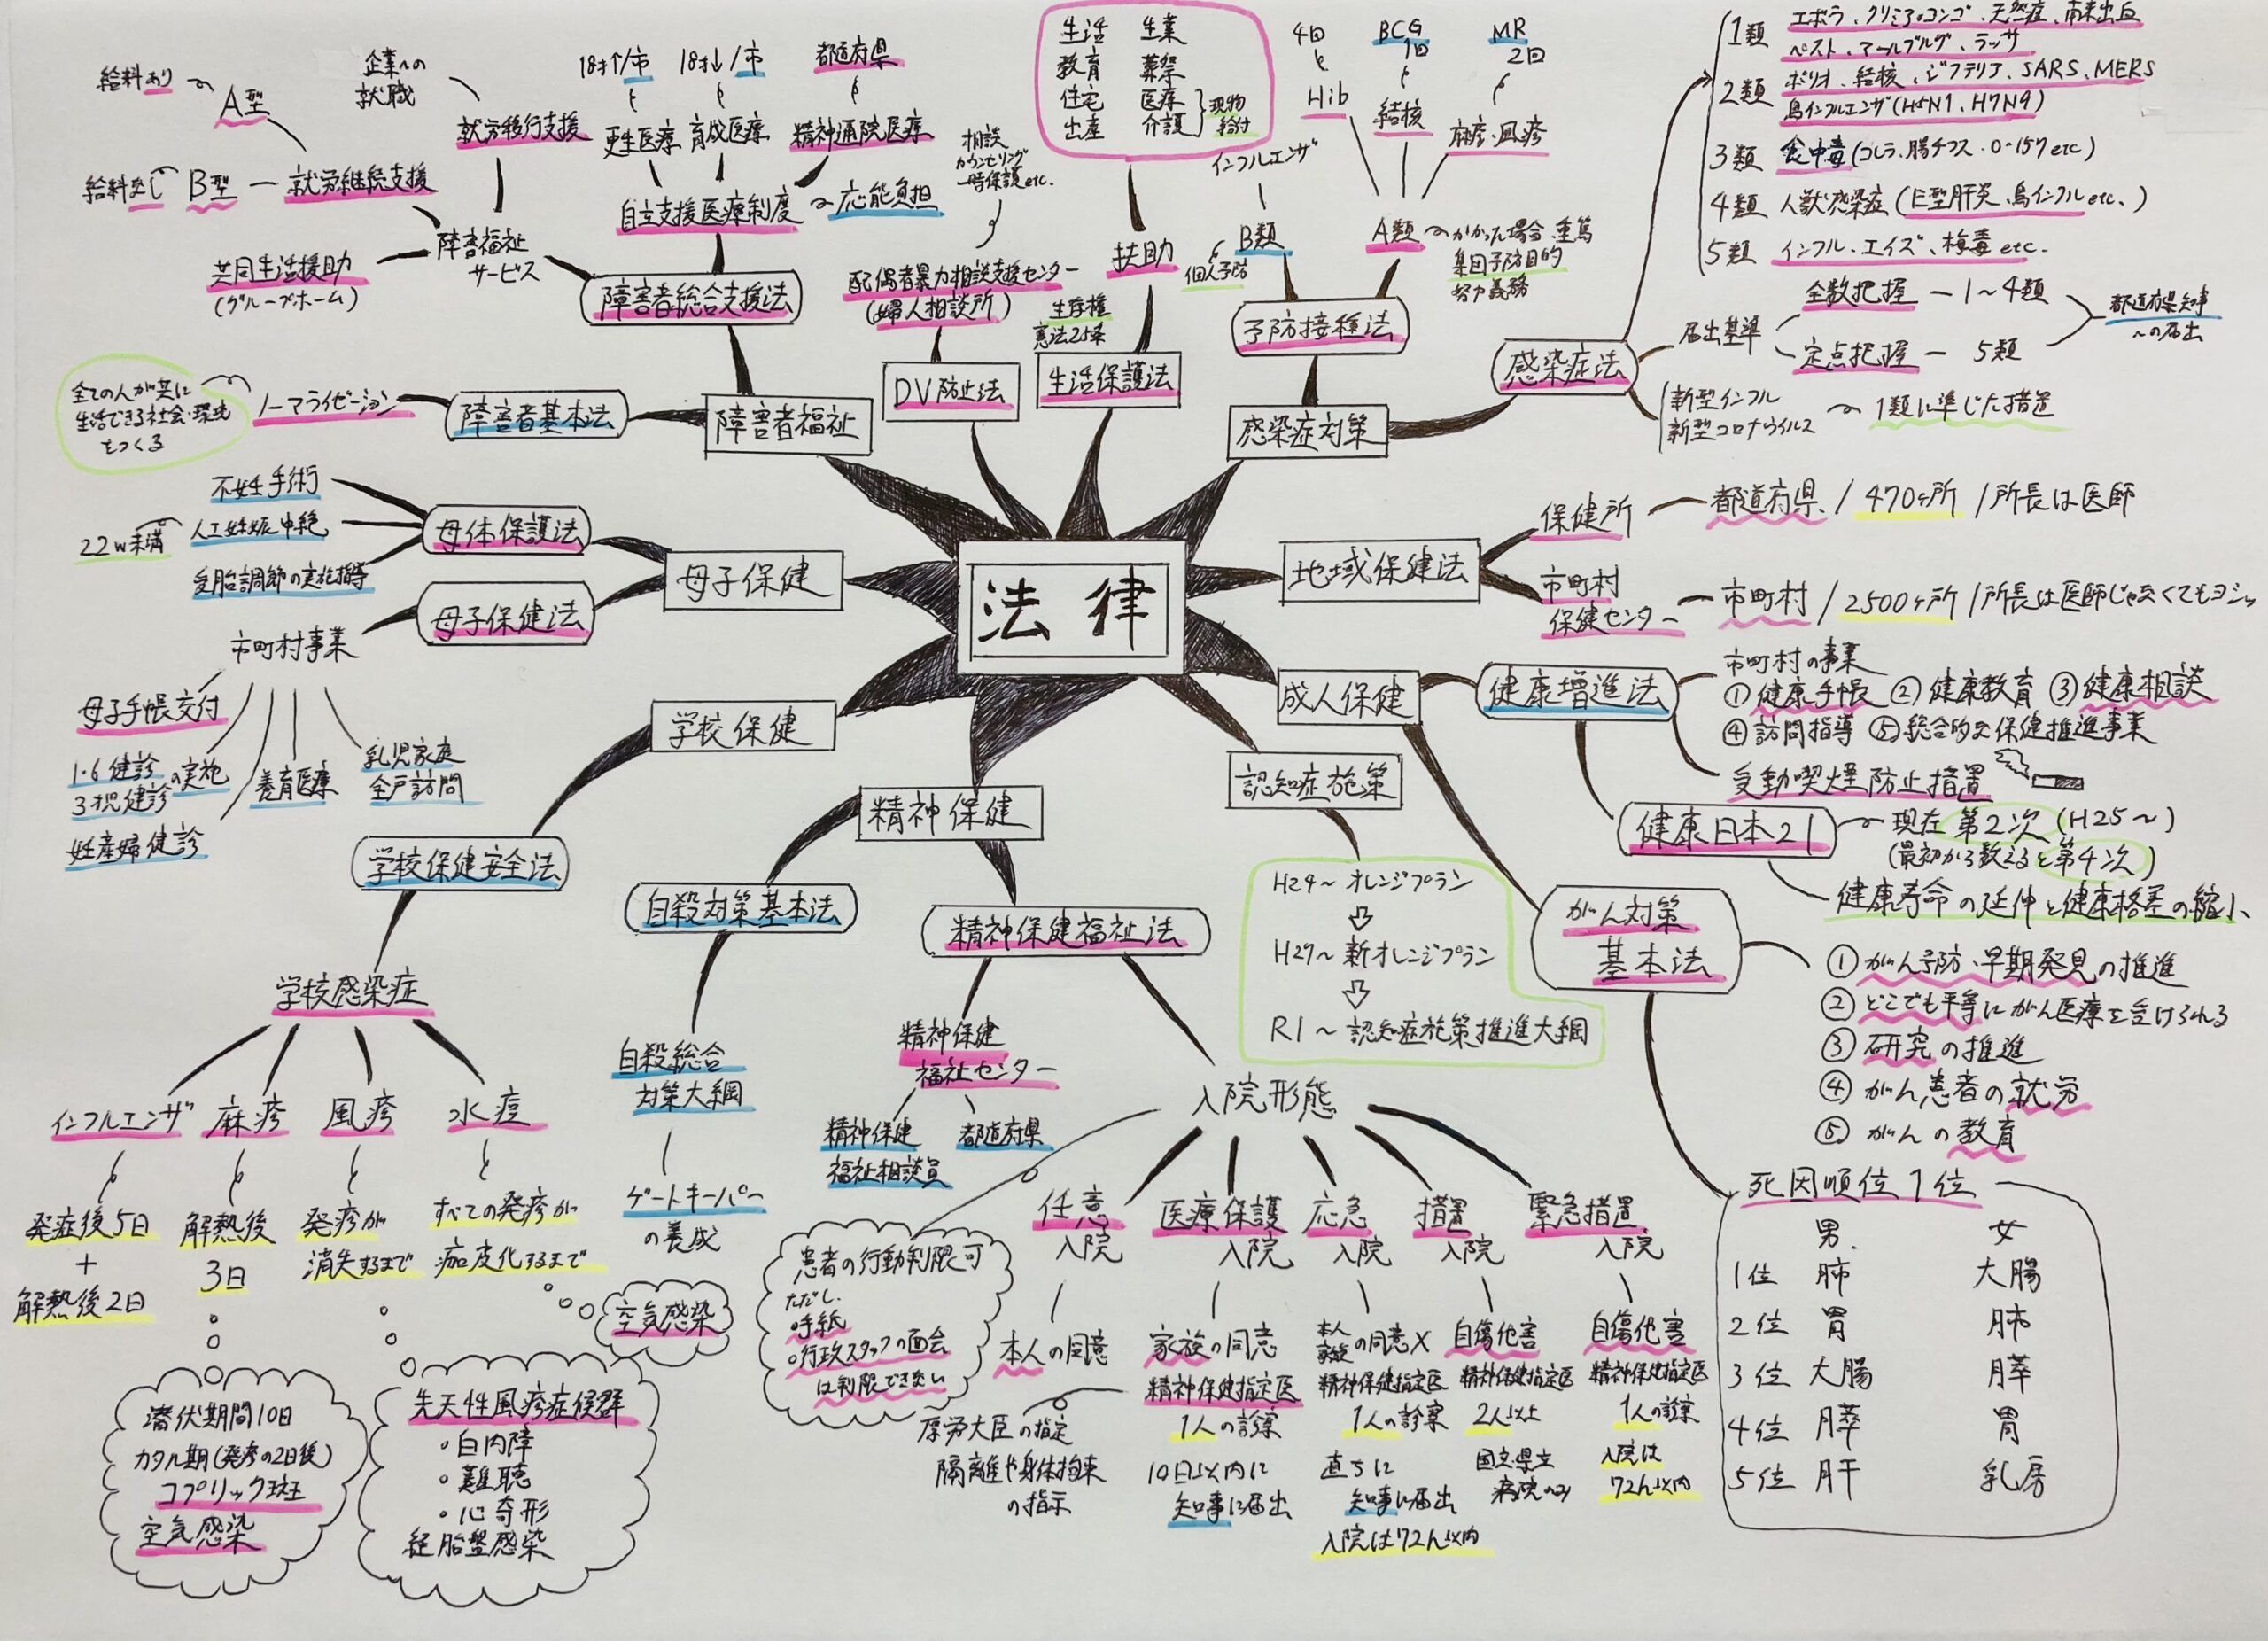 法律
障害者福祉
障害者総合支援法
自立支援医療制度
応能負担
更生医療
18才↑/市
育成医療
18才↓/市
精神通院医療
都道府県
障害福祉
サービス
就労移行支援
企業への
就職
就労継続支援
A型
給料あり
B型
給料なし
共同生活援助
(グループホーム)
障害者基本法
ノーマライゼーション
全ての人が共に
生活できる社会・環境
をつくる
DV防止法
配偶者暴力相談支援センター
(婦人相談所)
相談
カウンセリング
一時保護etc.
生活保護法
生存権
憲法25条
扶助
生活 生業
教育 葬祭
住宅 医療
出産 介護
現物
給付
感染症対策
予防接種法
B類
個人予防
インフルエンザ
A類
かかった場合、重篤
集団予防目的
努力義務
Hib
4回
結核
BCG
1回
麻疹・風疹
MR
2回
感染症法
1類 エボラ、クリミア・コンゴ、天然痘、南米出血
ペスト、マールブルグ、ラッサ
2類 ポリオ、結核、ジフテリア、SARS、MERS
鳥インフルエンザ(H5N1、H7N9)
3類 食中毒(コレラ、腸チフス、O-157etc)
4類 人獣感染症(E型肝炎、鳥インフルetc.)
5類 インフル、エイズ、梅毒etc.
届出基準
全数把握 ー 1〜4類
定点把握 ー 5類
都道府県知事
への届出
新型インフル
新型コロナウイルス
1類に準じた措置
地域保健法
保健所
都道府県/470ヶ所/所長は医師
市町村
保健センター
市町村/2500ヶ所/所長は医師じゃなくてもヨシッ
成人保健
健康増進法
市町村の事業
①健康手帳 ②健康教育 ③健康相談
④訪問指導 ⑤総合的な保健推進事業
受動喫煙防止措置
健康日本21
現在 第2次 (H25〜)
(最初から数えると第4次)
健康寿命の延伸と健康格差の縮小
がん対策
基本法
①がん予防・早期発見の推進
②どこでも平等にがん医療を受けられる
③研究の推進
④がん患者の就労
⑤がんの教育
死因順位1位
男 女
1位 肺 大腸
2位 胃 肺
3位 大腸 膵
4位 膵 胃
5位 肝 乳房
認知症施策
H24〜 オレンジプラン
H27〜 新オレンジプラン
R1〜 認知症施策推進大綱
精神保健
精神保健福祉法
精神保健
福祉センター
精神保健
福祉相談員
都道府県
入院形態
患者の行動制限可
ただし、
手紙
行政スタッフの面会
は制限できない
任意
入院
本人の同意
医療保護
入院
家族の同意
精神保健指定医
1人の診察
10日以内に
知事に届出
厚労大臣の指定
隔離や身体拘束
の指示
応急
入院
本人
家族の同意×
精神保健指定医
1人の診察
直ちに
知事に届出
入院は72h以内
措置
入院
自傷他害
精神保健指定医
2人以上
国立・県立
病院のみ
緊急措置
入院
自傷他害
精神保健指定医
1人の診察
入院は
72h以内
自殺対策基本法
自殺総合
対策大綱
ゲートキーパー
の養成
学校保健
学校保健安全法
学校感染症
インフルエンザ
発症後5日
+
解熱後2日
麻疹
解熱後
3日
潜伏期間10日
カタル期(発疹の2日後)
コプリック斑
空気感染
風疹
発疹が
消失するまで
先天性風疹症候群
白内障
難聴
心奇形
経胎盤感染
水痘
すべての発疹が
痂皮化するまで
空気感染
母子保健
母体保護法
不妊手術
人工妊娠中絶
22w未満
受胎調節の実施指導
母子保健法
市町村事業
母子手帳交付
1・6健診
3才児健診
の実施
妊産婦健診
養育医療
乳児家庭
全戸訪問